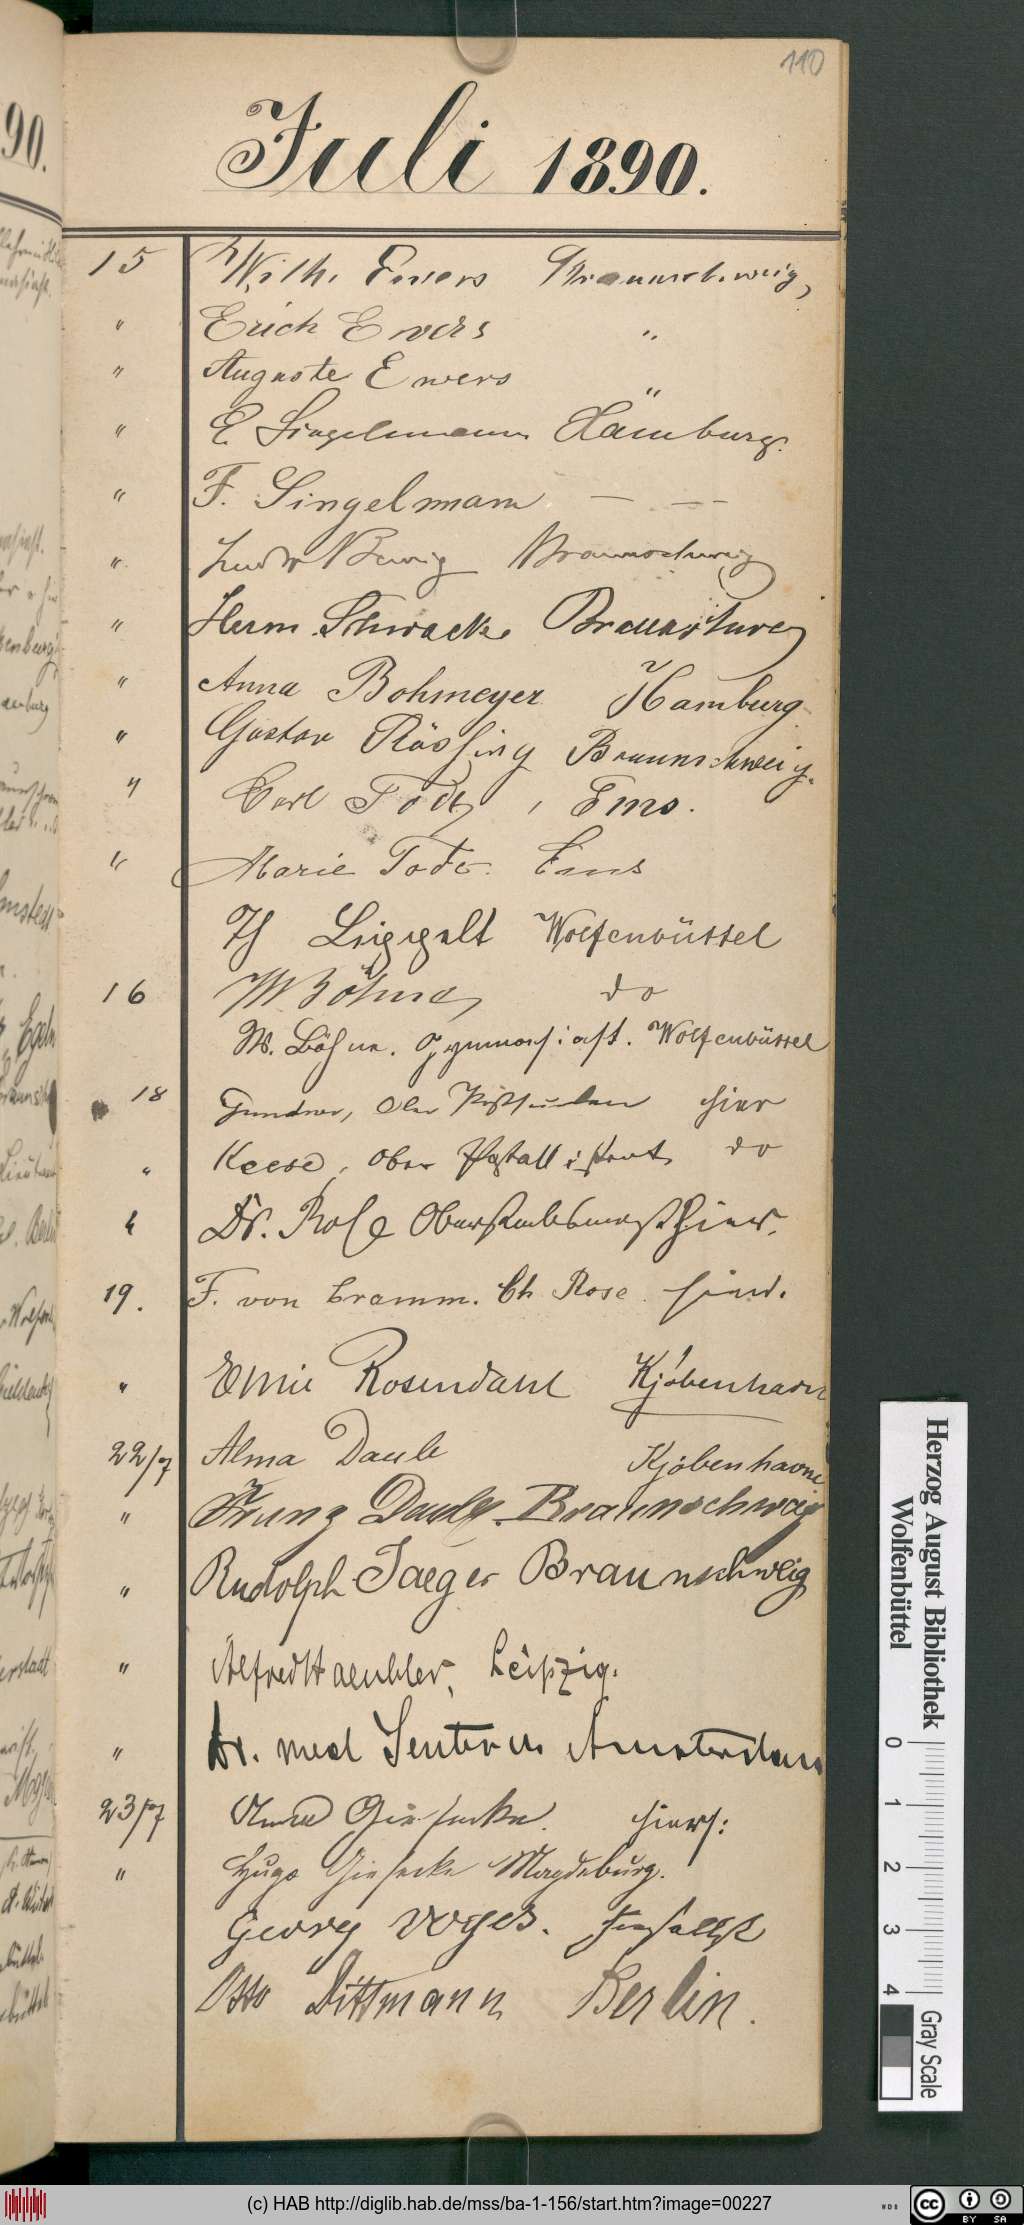 110
Juli 1890.
15 Wilh. Ewers Braunschweig,
" Erich Evers "
" Auguste Ewers "
" E Singelmann Hamburg.
" F. Singelmann — —
" Ludw Braunschweig
" Herm. Schwacke Braunschweig
" Anna Bohmeyer Hamburg
" Gustav Rössing Braunschweig.
" Carl Tode, Ems.
" Marie Tode. Ems
Th Lippelt Wolfenbüttel
16 W Böhme do
W. Böhme. Gymnasiast. Wolfenbüttel
18 Ober hier
" Keese, Ober do
" Dr. Rose Oberstabsarzt hier.
19. F. von Cramm. Ch Rose hier.
" Emie Rosendahl Kjöbenhavn
22/7 Alma Daube Kjöbenhavn
" Franz Daube. Braunschweig
" Rudolph Jaeger Braunschweig
" Alfred Haenhler, Leipzig.
" Dr. med Amsterdam
23/7 Anna Giesecke. hiers:
" Hugo Giesecke Magdeburg.
Georg Voges. hieselbst
Otto Dittmann Berlin.
Herzog August Bibliothek
Wolfenbüttel
0 1 2 3 4
Gray Scale
(c) HAB http://diglib.hab.de/mss/ba-1-156/start.htm?image=00227
WDB
cc BY SA